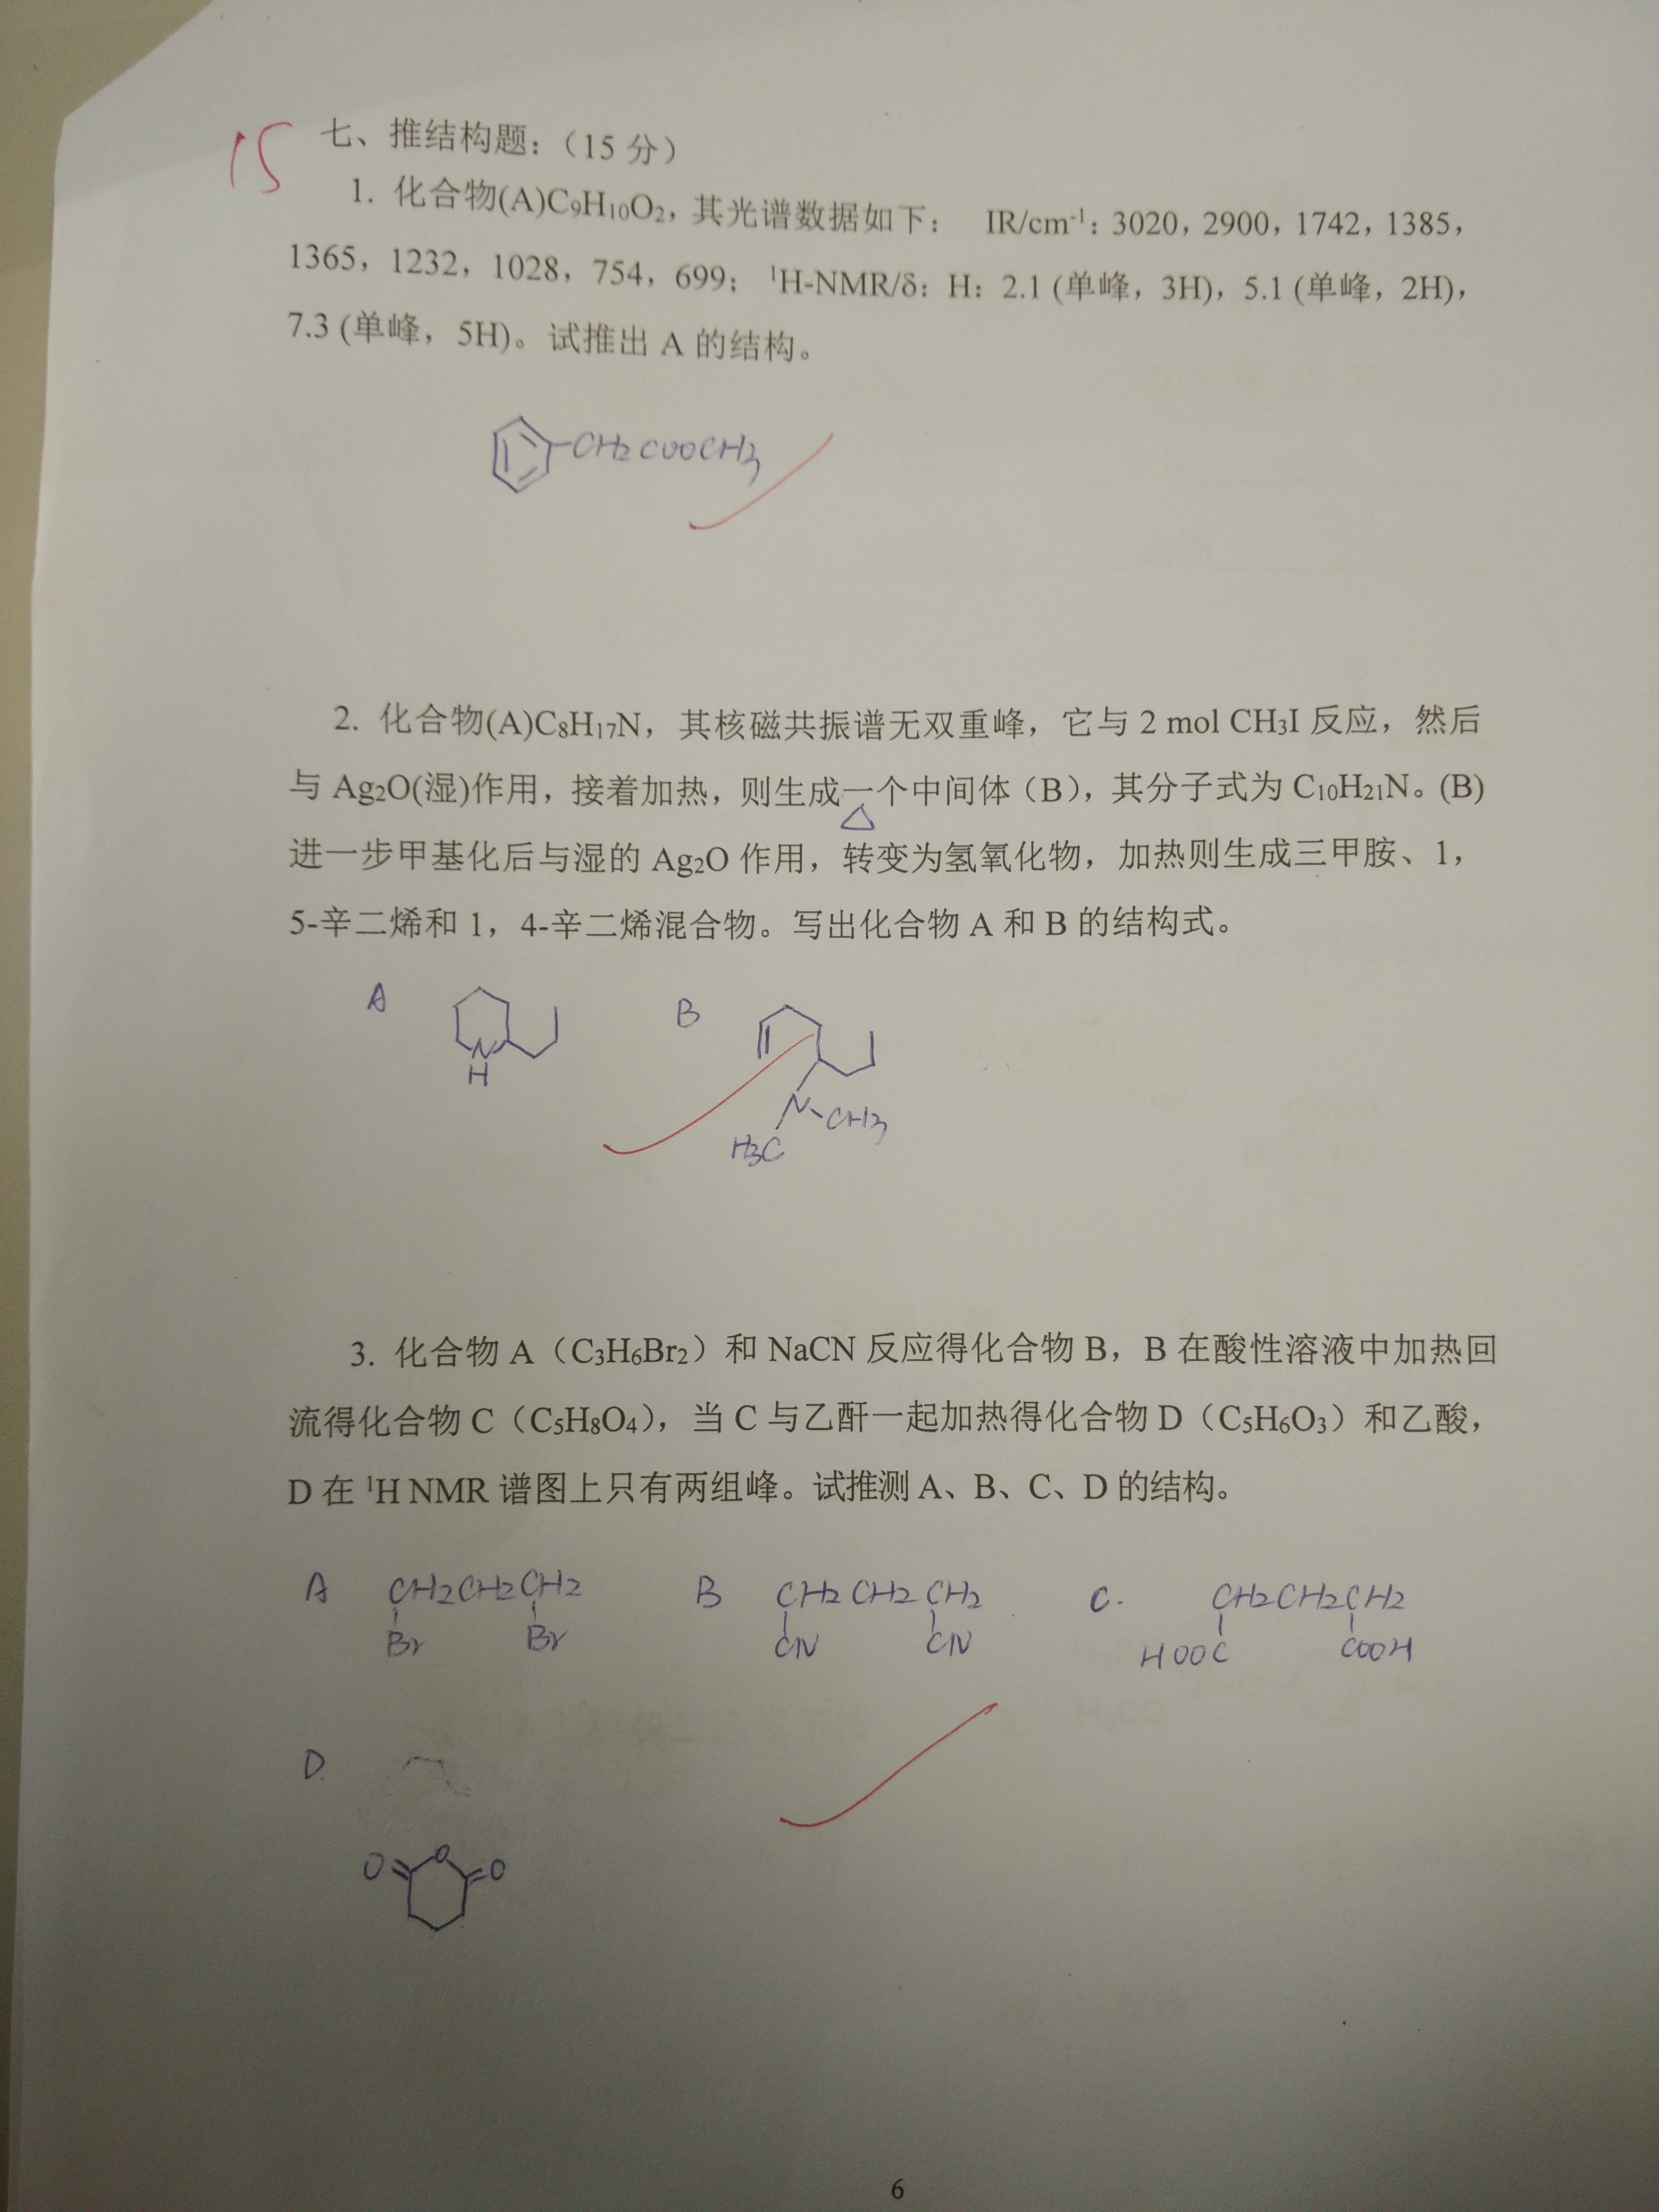 15
七、推结构题：（15 分）
1. 化合物(A)C₉H₁₀O₂，其光谱数据如下： IR/cm⁻¹: 3020，2900，1742，1385，
1365，1232，1028，754，699；¹H-NMR/δ: H: 2.1 (单峰，3H)，5.1 (单峰，2H)，
7.3 (单峰，5H)。试推出 A 的结构。
CH₂COOCH₃
2. 化合物(A)C₈H₁₇N，其核磁共振谱无双重峰，它与 2 mol CH₃I 反应，然后
与 Ag₂O(湿)作用，接着加热，则生成一个中间体（B），其分子式为 C₁₀H₂₁N。(B)
△
进一步甲基化后与湿的 Ag₂O 作用，转变为氢氧化物，加热则生成三甲胺、1，
5-辛二烯和 1，4-辛二烯混合物。写出化合物 A 和 B 的结构式。
A
N
H
B
N
CH₃
H₃C
3. 化合物 A（C₃H₆Br₂）和 NaCN 反应得化合物 B，B 在酸性溶液中加热回
流得化合物 C（C₅H₈O₄），当 C 与乙酐一起加热得化合物 D（C₅H₆O₃）和乙酸，
D 在 ¹H NMR 谱图上只有两组峰。试推测 A、B、C、D 的结构。
A CH₂CH₂CH₂ B CH₂CH₂CH₂ C. CH₂CH₂CH₂
Br Br CN CN HOOC COOH
D.
O O O
6